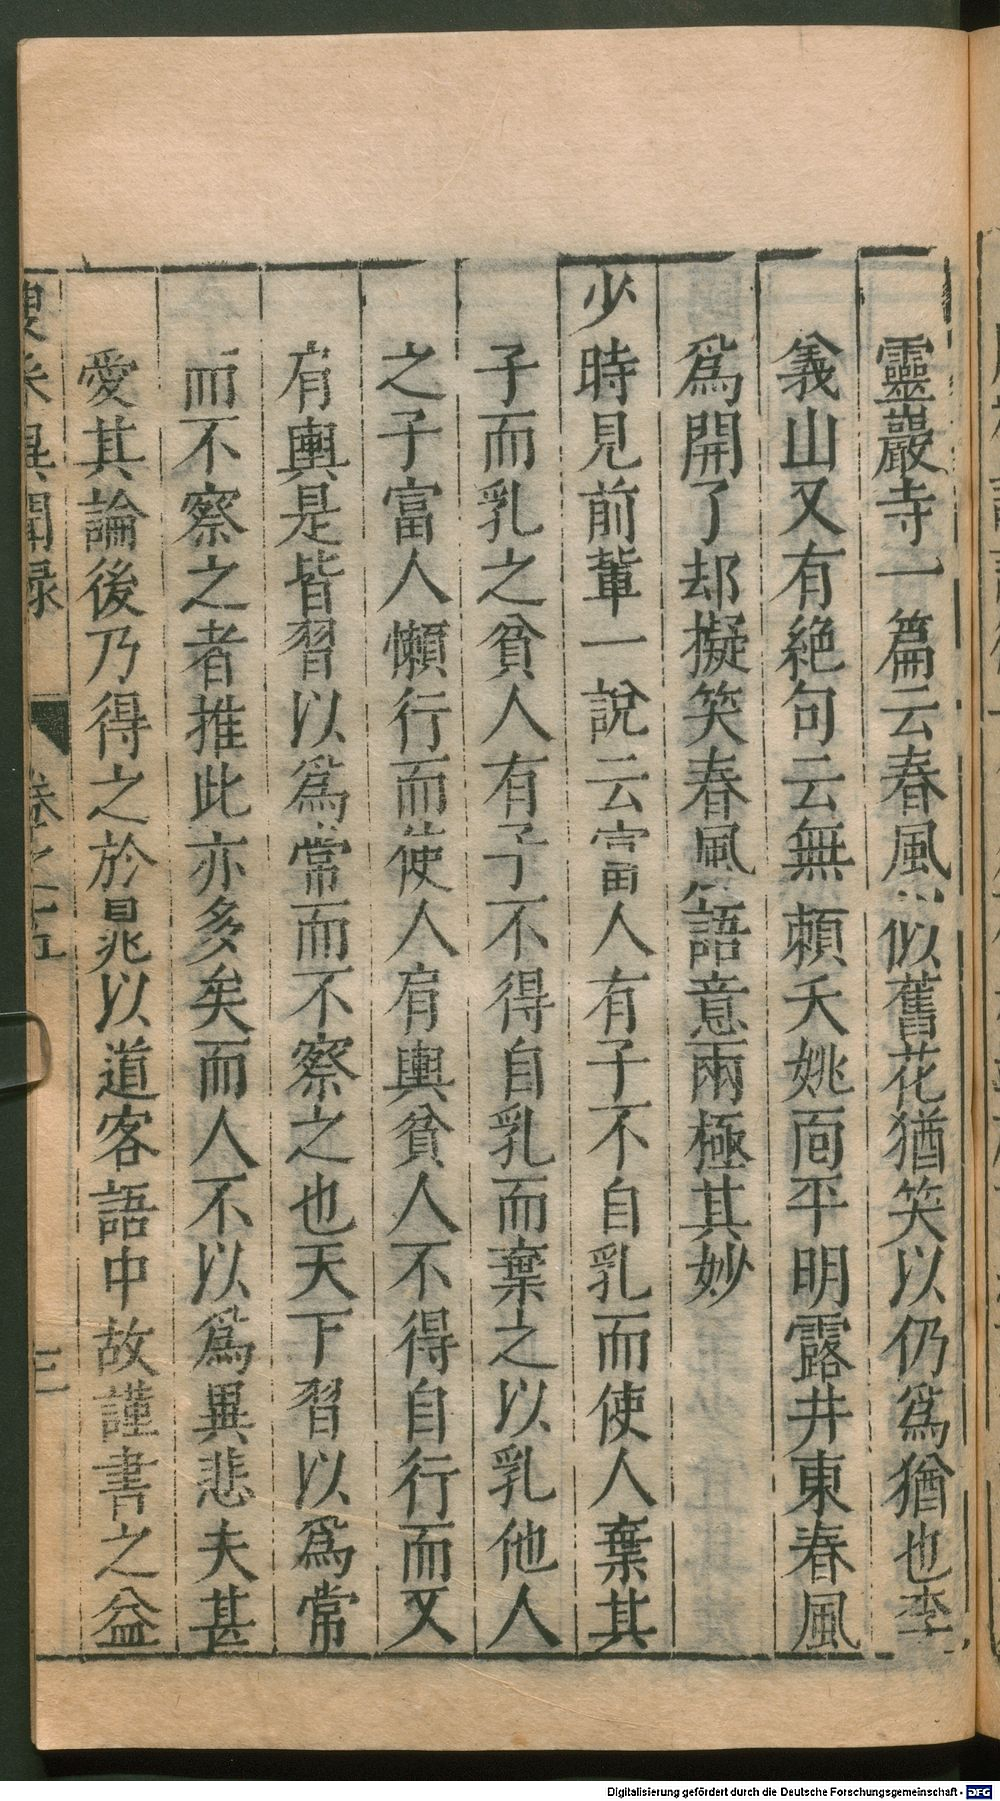 靈巖寺一篇云春風仍似舊花猶笑以仍爲猶也李
義山又有絶句云無頼夭姚面平明露井東春風
爲開了却擬笑春風語意兩極其妙
少時見前輩一說云富人有子不自乳而使人棄其
子而乳之貧人有子不得自乳而棄之以乳他人
之子富人懶行而使人肩輿貧人不得自行而又
肩輿是皆習以爲常而不察之也天下習以爲常
而不察之者推此亦多矣而人不以爲異悲夫甚
愛其論後乃得之於晁以道客語中故謹書之益
叟采異聞録 卷之五 三
Digitalisierung gefördert durch die Deutsche Forschungsgemeinschaft - DFG